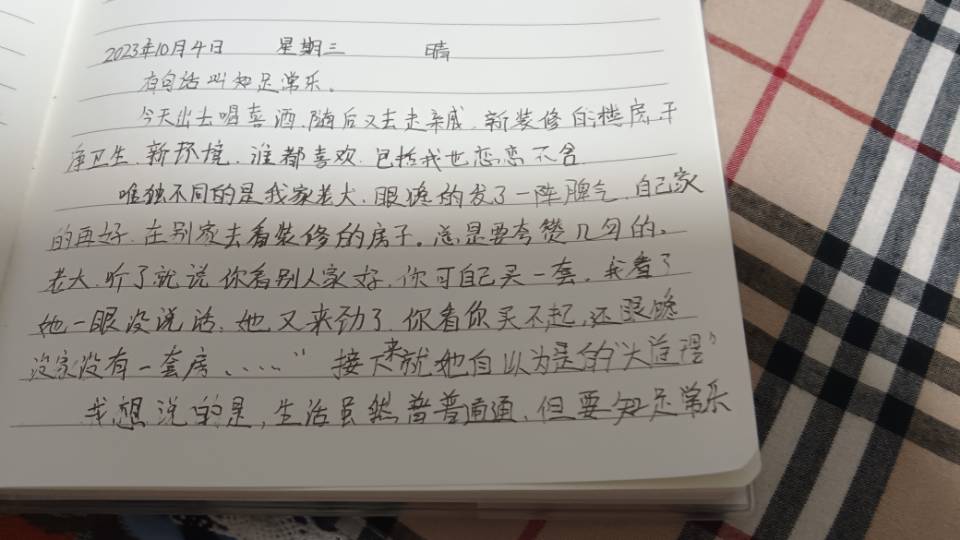 2023年10月4日 星期三 晴
有句话叫知足常乐.
今天出去喝喜酒.随后又去走亲戚.新装修的楼房.干
净卫生.新环境.谁都喜欢.包括我也恋恋不舍
唯独不同的是我家老大.眼馋的发了一阵脾气.自己家
的再好.在别家去看装修的房子。总是要夸赞几句的。
老大.听了就说你看别人家好.你可自己买一套.我看了
她一眼没说话.她又来劲了.你看你买不起,还眼馋
没家没有一套房、……” 接下来就她自以为是的“大道理”
我想说的是,生活虽然普普通通.但要知足常乐